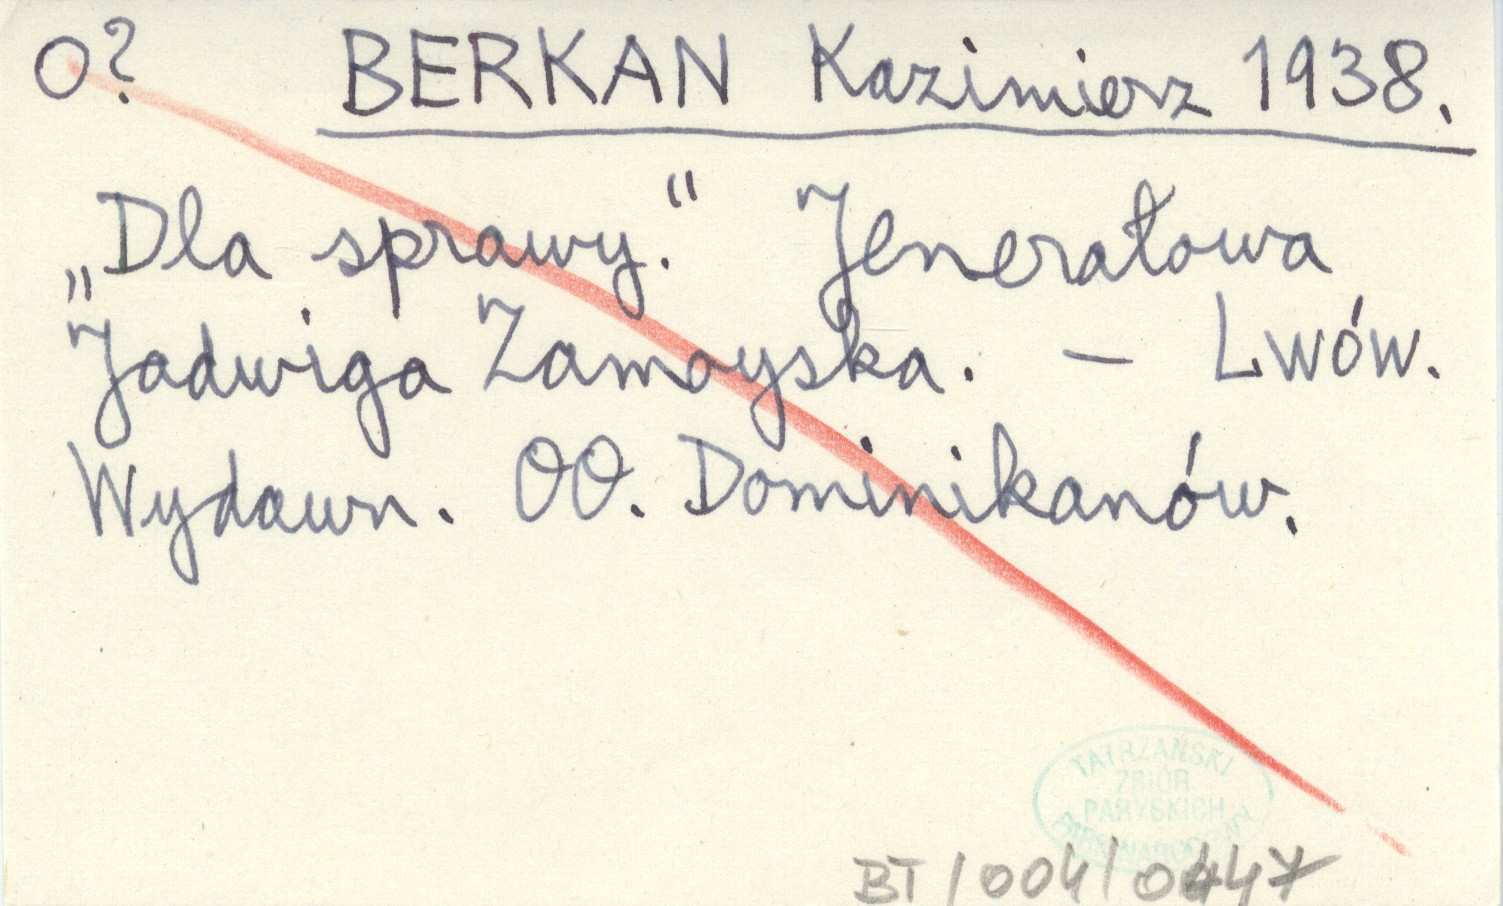 O? BERKAN Kazimierz 1938.
„Dla sprawy.“ Jenerałowa
Jadwiga Zamoyska. – Lwów.
Wydawn. OO. Dominikanów.
TATRZAŃSKI
ZBIÓR
PARYSKICH
BT/004/0447